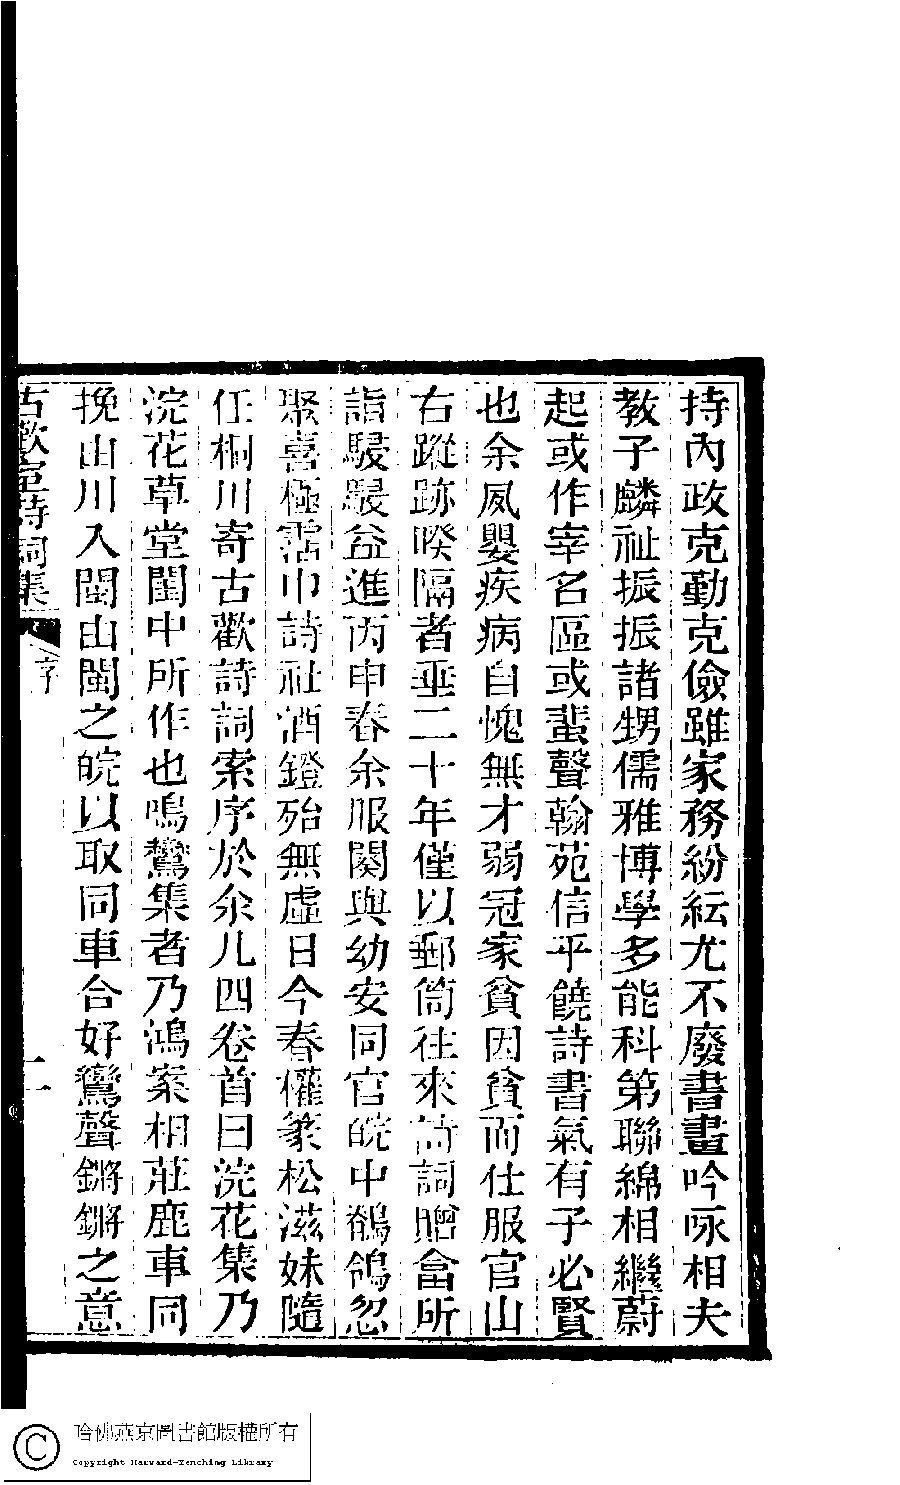 持內政克勤克儉雖家務紛紜尤不廢書畫吟咏相夫
教子麟祉振振諸甥儒雅博學多能科第聯綿相繼蔚
起或作宰名區或蜚聲翰苑信乎饒詩書氣有子必賢
也余夙嬰疾病自愧無才弱冠家貧因貧而仕服官山
右蹤跡暌隔者垂二十年僅以郵筒往來詩詞贈畣所
詣駸駸益進丙申春余服闋與幼安同官皖中鶺鴒忽
聚喜極霑巾詩社酒鐙殆無虛日今春權篆松滋妹隨
任桐川寄古歡詩詞索序於余凡四卷首曰浣花集乃
浣花草堂閨中所作也鳴鸞集者乃鴻案相莊鹿車同
挽由川入閩由閩之皖以取同車合好鸞聲鏘鏘之意
古歡室詩詞集
序
二
哈佛燕京圖書館版權所有
Copyright Harvard-Yenching Library